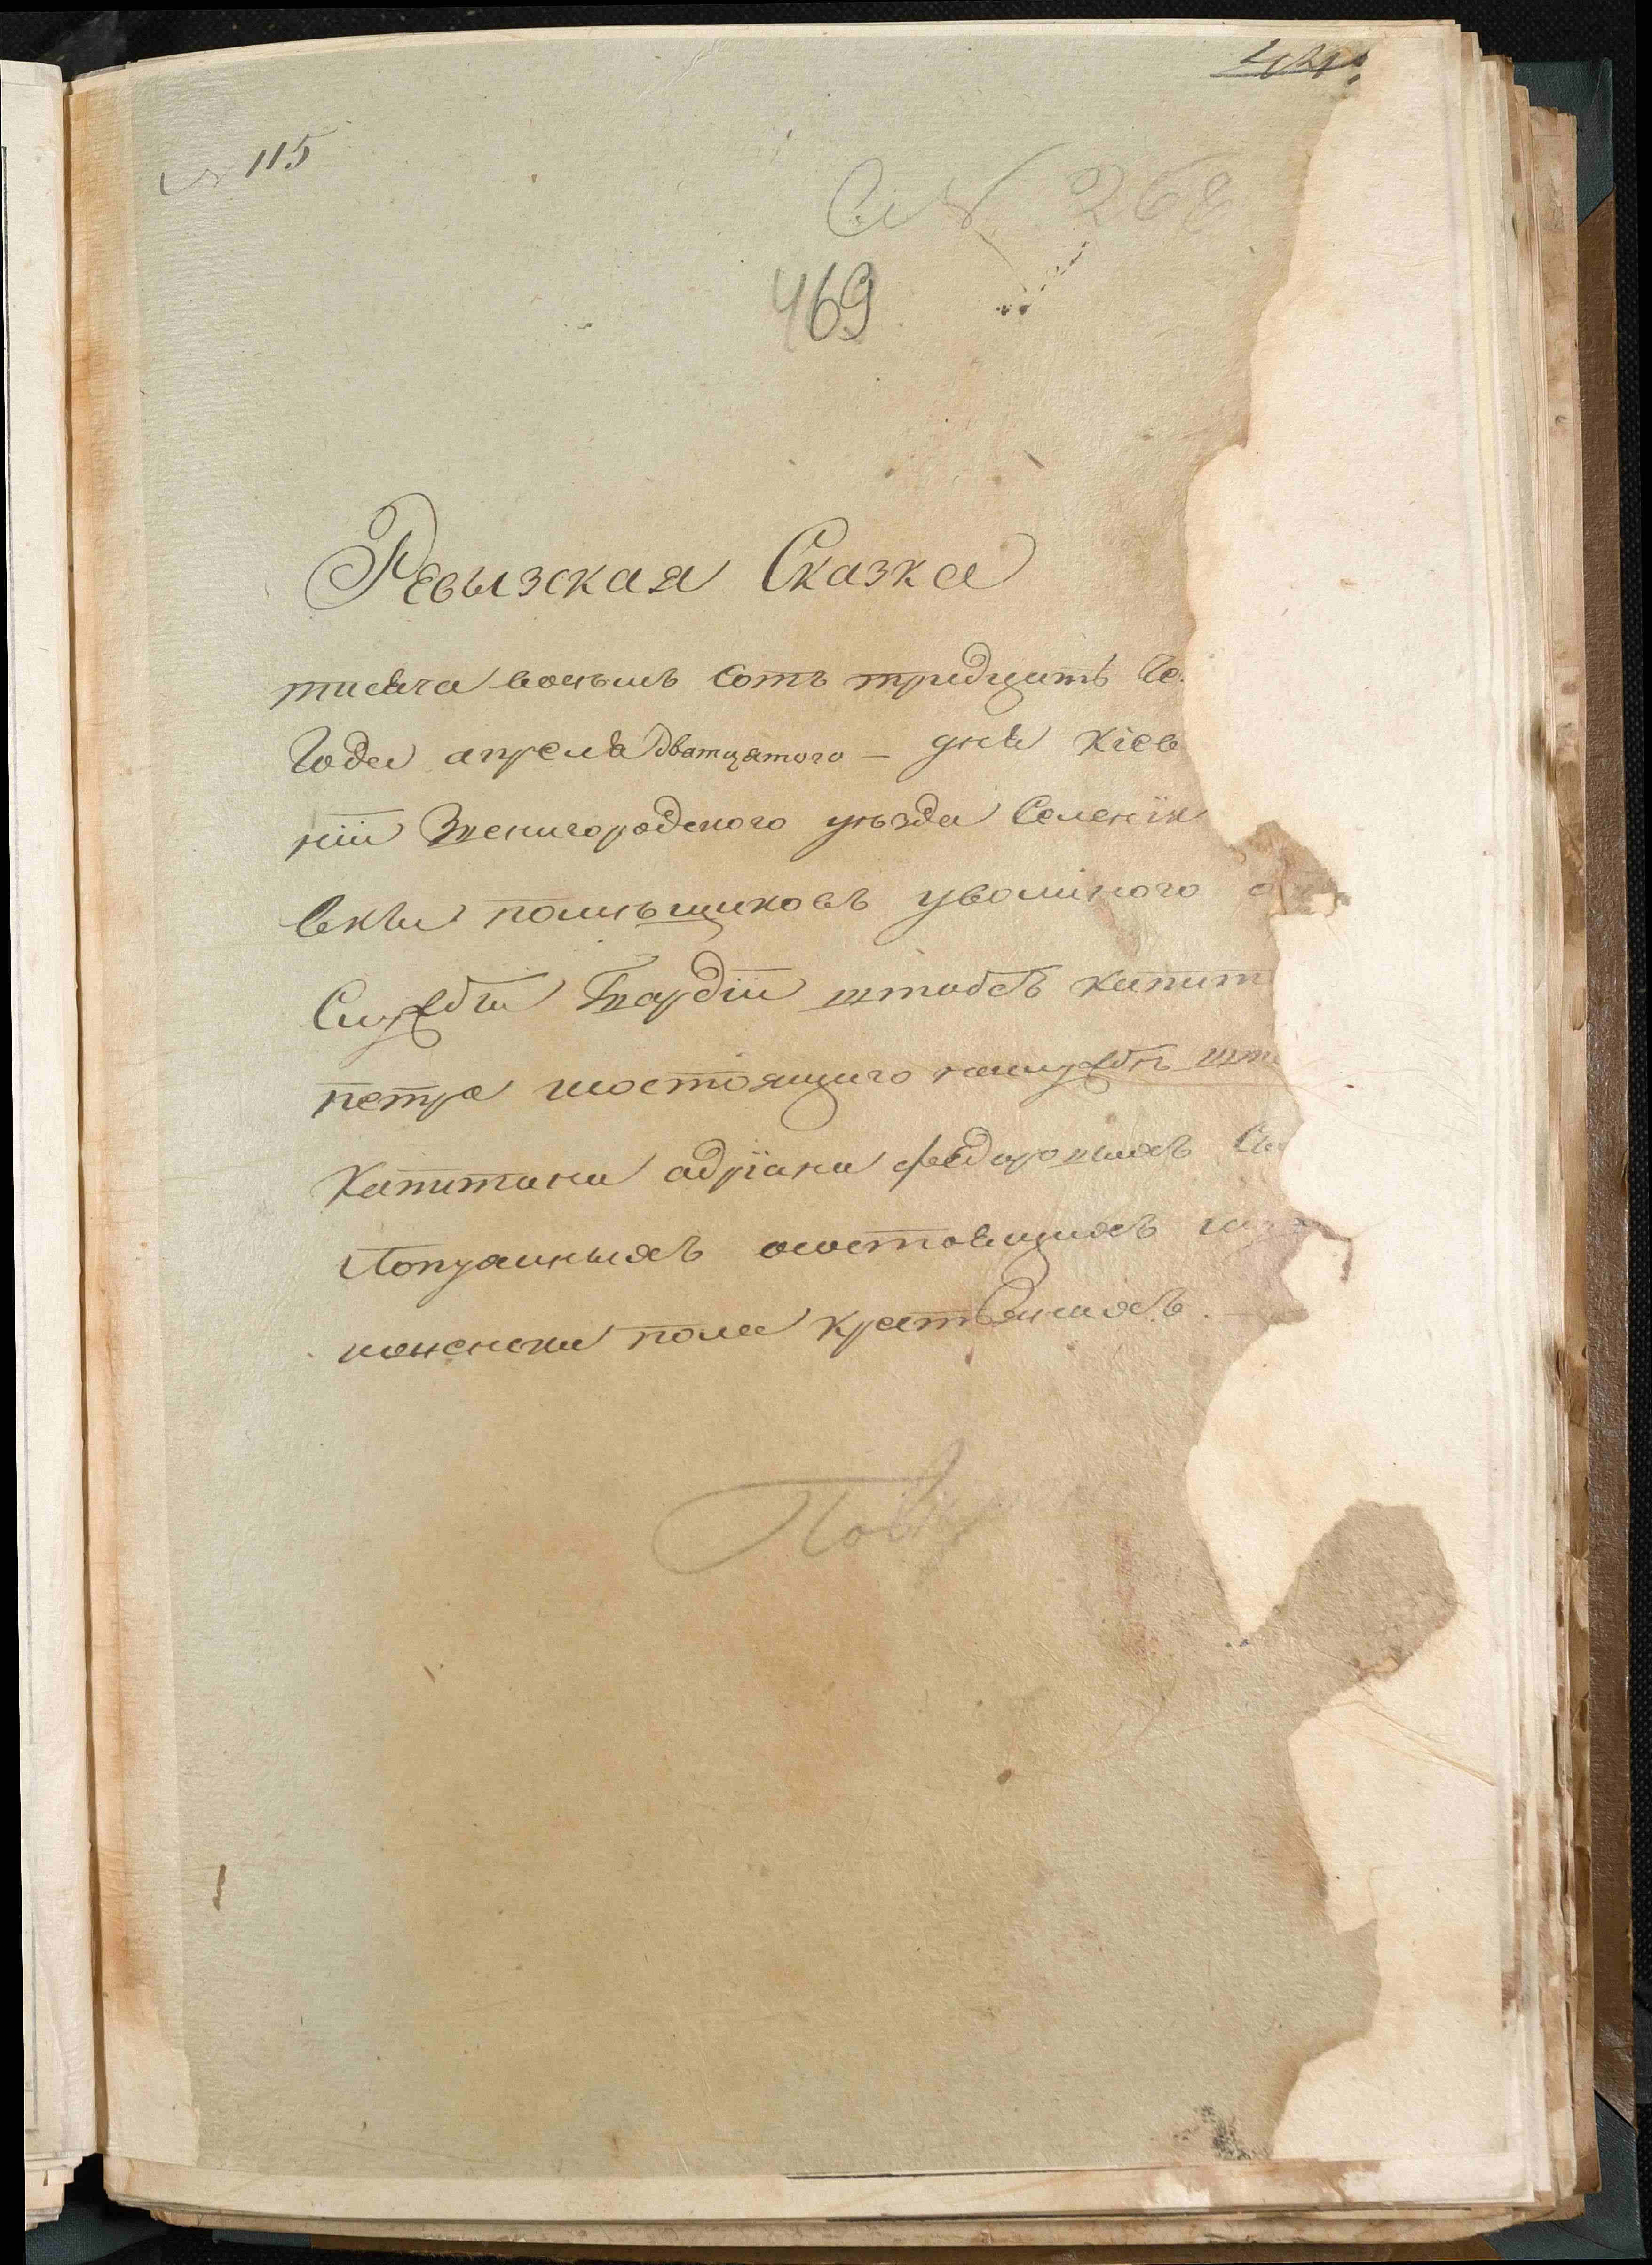 № 115
№ 268
469
Ревызская Сказка
тисяча восьмь сотъ тридцать че
Года апреля дватцятого — дня Кіев
ніи Звенигородского уѣзда Селенїя
вки помѣщиковъ уволіного о
Службы Гвардїи штабсъ капит
петра и состоящиго наслужбѣ шта
Капитана адрїана федоровыхъ Сы
Лопухиныхъ осостоящихъ
иженска пола крестьянихъ.
Повѣр